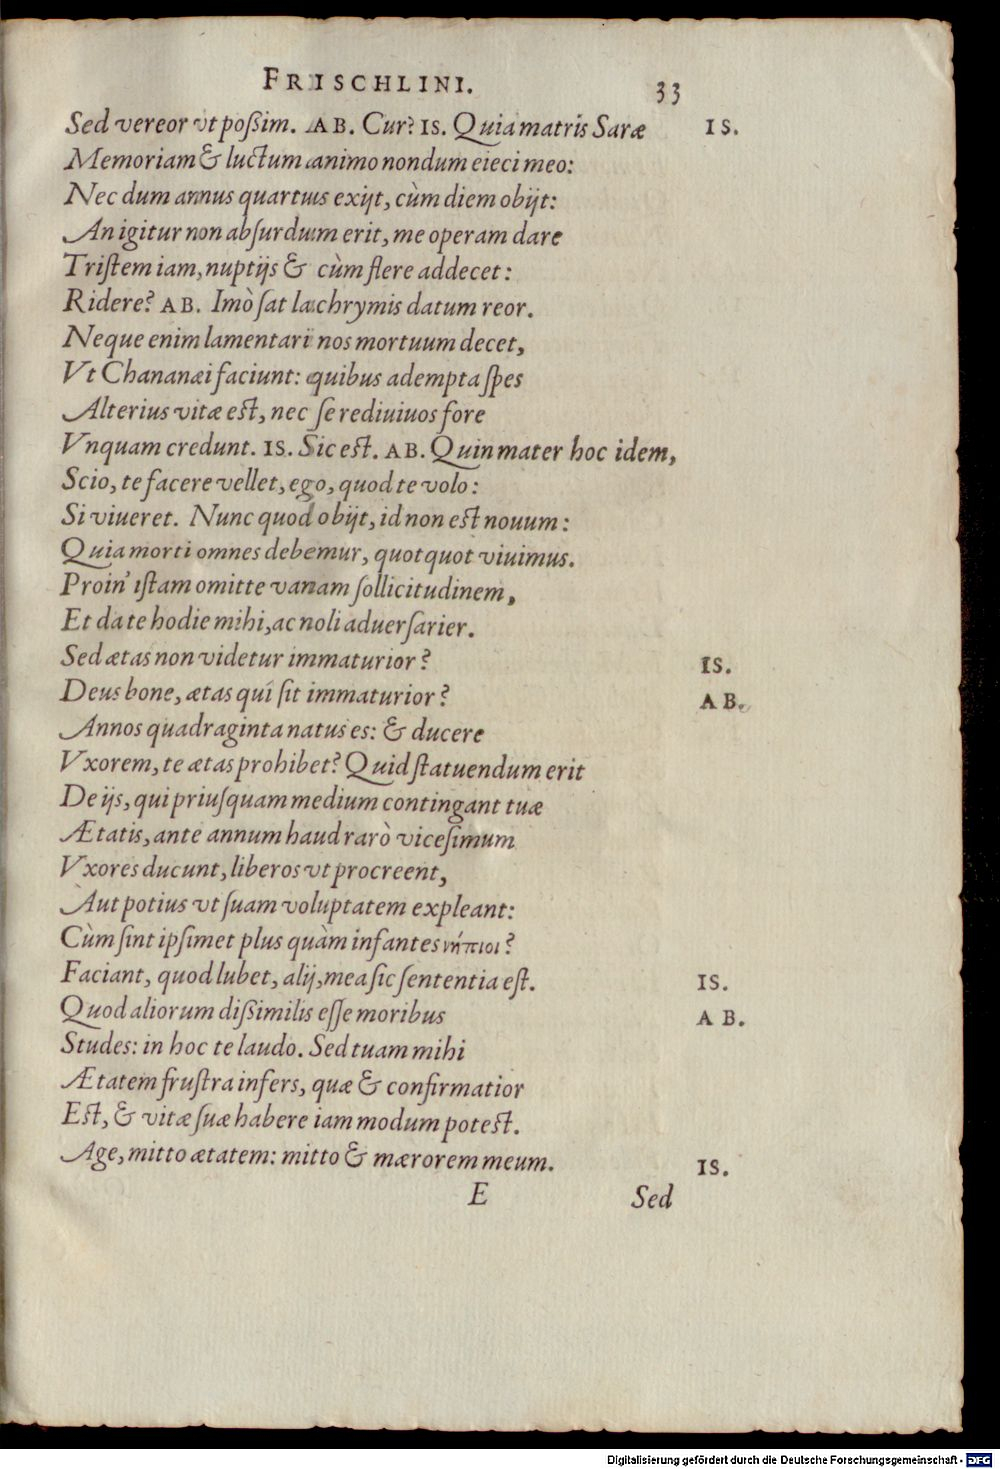 FRISCHLINI. 33
Sed vereor vt poßim. AB. Cur? IS. Quia matris Saræ IS.
Memoriam & luctum animo nondum eieci meo:
Nec dum annus quartus exijt, cùm diem obijt:
An igitur non absurdum erit, me operam dare
Tristem iam, nuptijs & cùm flere addecet:
Ridere? AB. Imò sat lachrymis datum reor.
Neque enim lamentari nos mortuum decet,
Vt Chananæi faciunt: quibus adempta spes
Alterius vitæ est, nec se rediuiuos fore
Vnquam credunt. IS. Sic est. AB. Quin mater hoc idem,
Scio, te facere vellet, ego, quod te volo:
Si viueret. Nunc quod obijt, id non est nouum:
Quia morti omnes debemur, quotquot viuimus.
Proin' istam omitte vanam sollicitudinem,
Et da te hodie mihi, ac noli aduersarier.
Sed ætas non videtur immaturior? IS.
Deus bone, ætas quî sit immaturior? AB.
Annos quadraginta natus es: & ducere
Vxorem, te ætas prohibet? Quid statuendum erit
De ijs, qui priusquam medium contingant tuæ
Ætatis, ante annum haud rarò vicesimum
Vxores ducunt, liberos vt procreent,
Aut potius vt suam voluptatem expleant:
Cùm sint ipsimet plus quàm infantes νήπιοι?
Faciant, quod lubet, alij, mea sic sententia est. IS.
Quod aliorum dißimilis esse moribus AB.
Studes: in hoc te laudo. Sed tuam mihi
Ætatem frustra infers, quæ & confirmatior
Est, & vitæ suæ habere iam modum potest.
Age, mitto ætatem: mitto & mærorem meum. IS.
E Sed
Digitalisierung gefördert durch die Deutsche Forschungsgemeinschaft - DFG